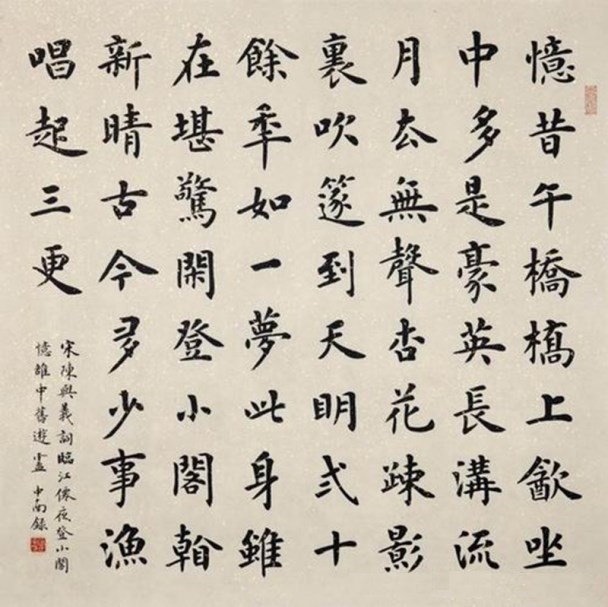 憶昔午橋橋上㱃坐
中多是豪英長溝流
月去無聲杏花疎影
裏吹篴到天明弍十
餘秊如一夢此身雖
在堪驚閑登小閣
新晴古今多少事漁
唱起三更
宋陳與義詞臨江僊夜登小閣
憶雒中舊遊盧中南錄